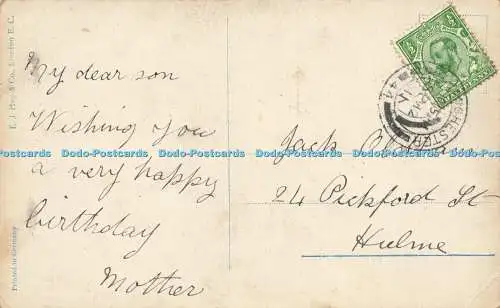 E. J. Hey & Co., London E. C.
Printed in Germany
My dear son
Wishing you
a very happy
birthday
Mother
Jack
24 Pickford St
Hulme
Dodo-Postcards Dodo-Postcards Dodo-Postcards Dodo-Postcards Dodo-Postcards Dodo-Postcards